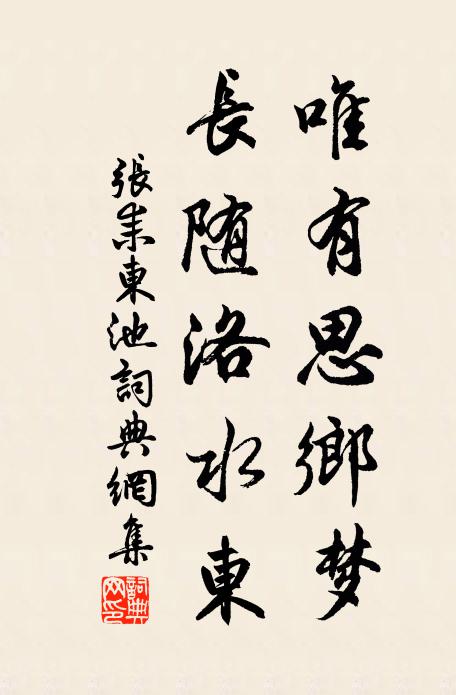 唯有思鄉梦
長随洛水東
張耒東池詞典網集
詞典网印